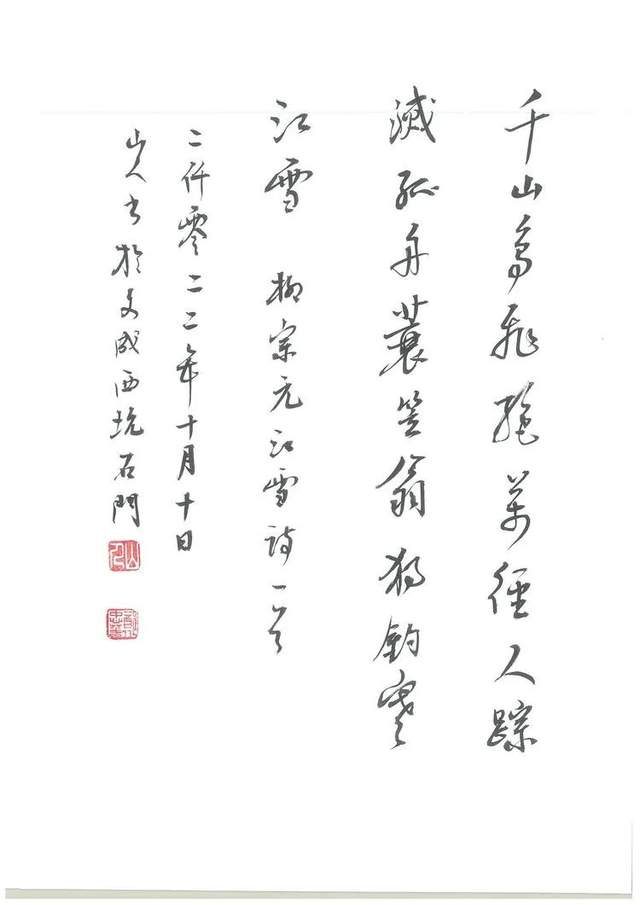 千山鳥飛絕萬徑人踪
滅孤舟蓑笠翁獨釣寒
江雪 柳宗元江雪詩一首
二仟零二二年十月十日
山人書於文成西坑石門
山人